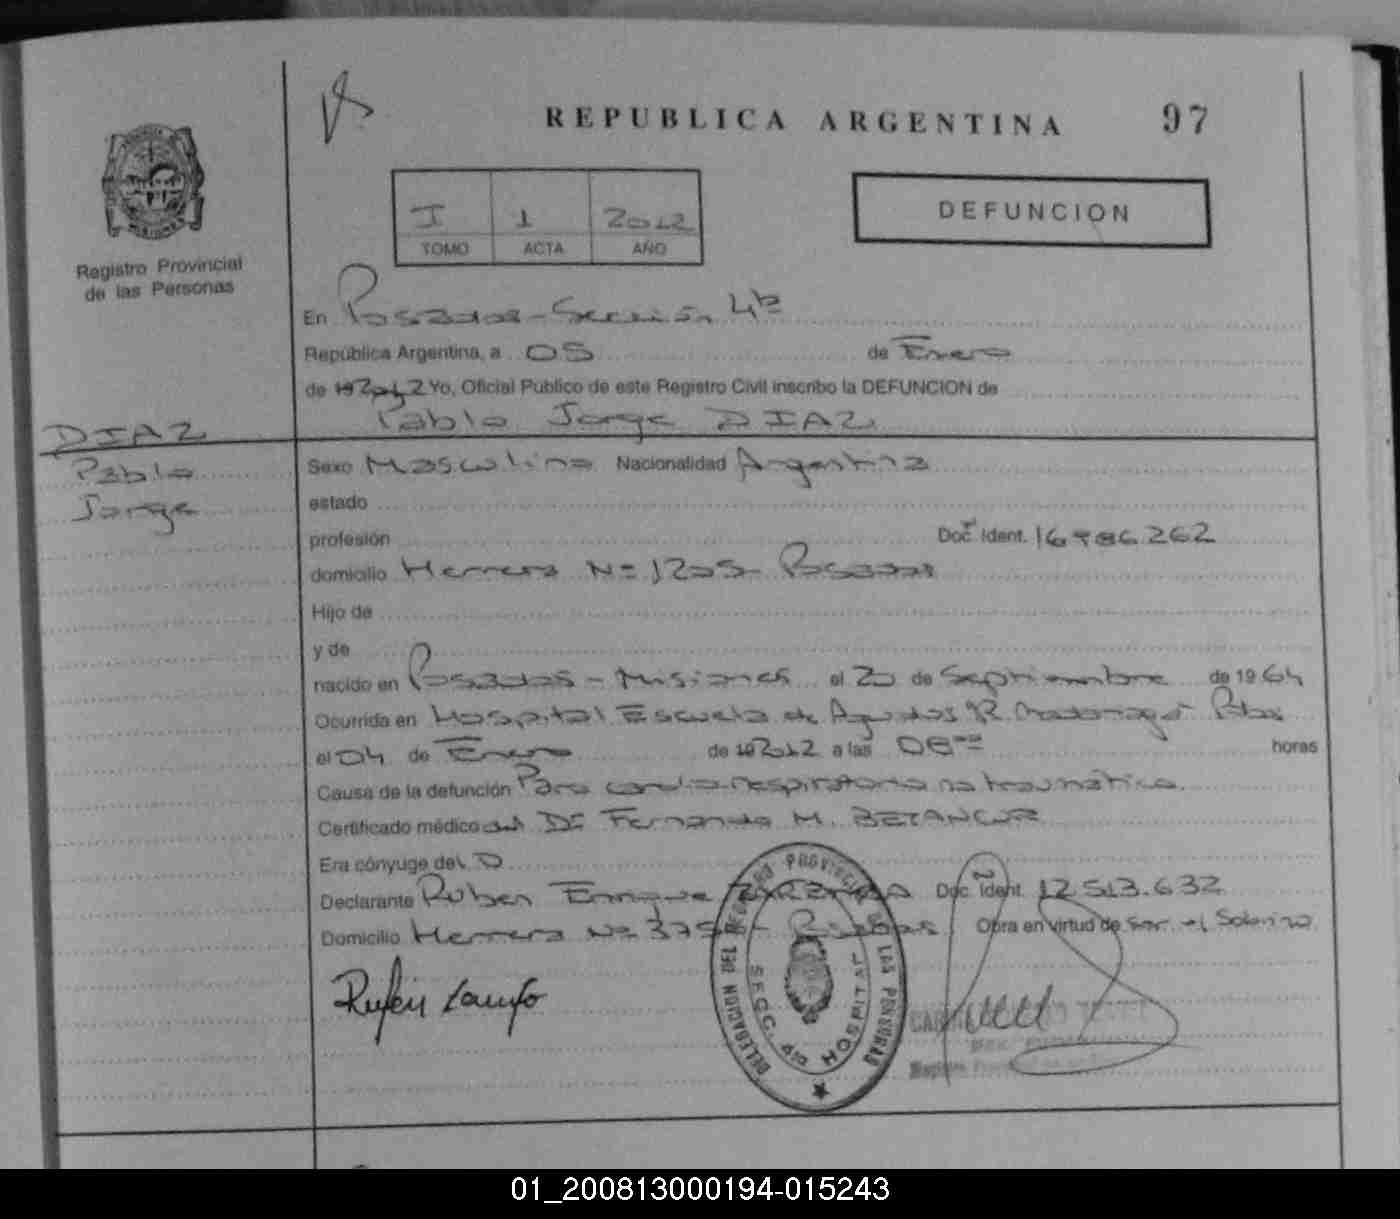 REPUBLICA ARGENTINA 97
I 1 2012
TOMO ACTA AÑO
DEFUNCION
MISIONES
Registro Provincial
de las Personas
En Posadas - Sección 4ta
República Argentina, a 05 de Enero
de 2012 Yo, Oficial Público de este Registro Civil inscribo la DEFUNCION de
Pablo Jorge DIAZ
DIAZ
Pablo
Jorge
Sexo Masculino Nacionalidad Argentina
estado
profesión Doc. Ident. 262
domicilio Herrera Nº 1205 - Posadas
Hijo de
y de
nacido en Posadas - Misiones el 20 de Septiembre de 1964
Ocurrida en Hospital Escuela de Agudos R. Madariaga Pdas
el 04 de Enero de 2012 a las 06 horas
Causa de la defunción Paro cardio-respiratorio no traumático.
Certificado médico del Dr Fernando M. BETANCUR
Era cónyuge de
Declarante Ruben Enrique Doc. Ident. 12.513.632
Domicilio Herrera Nº Posadas Obra en virtud de ser el Sobrino
DELEGACION DEL REGISTRO PROVINCIAL DE LAS PERSONAS
SECC. 4ta HOSPITAL
01_200813000194-015243